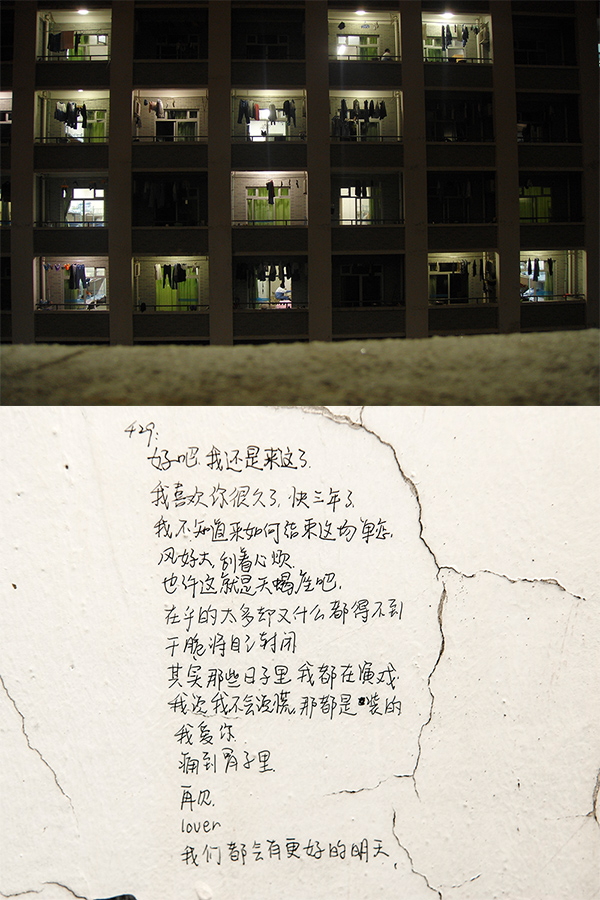 429:
好吧,我还是来这了.
我喜欢你很久了,快三年了.
我不知道来如何结束这场单恋.
风好大,刮着心烦.
也许这就是天蝎座吧.
在乎的太多却又什么都得不到
干脆将自己封闭
其实那些日子里 我都在演戏.
我说我不会说慌,那都是装的
我爱你.
痛到骨子里.
再见.
lover
我们都会有更好的明天.